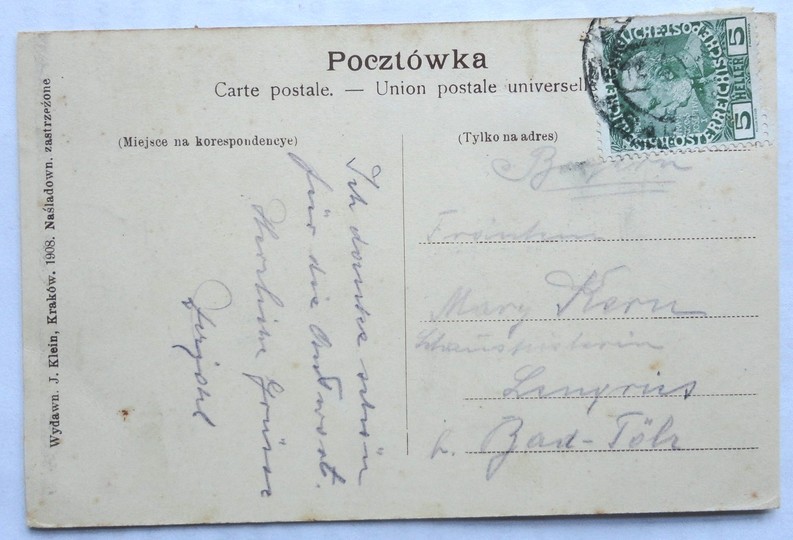 Pocztówka
Carte postale. — Union postale universell
(Miejsce na korespondencye)
(Tylko na adres)
Ich danke schön
für die Antwort.
Herzliche Grüsse
Bayern
Fräulein
Mary Kern
Schauspielerin
Lenggries
b. Bad-Tölz
Wydawn. J. Klein, Kraków. 1908. Naśladown. zastrzeżone
5 HELLER 5